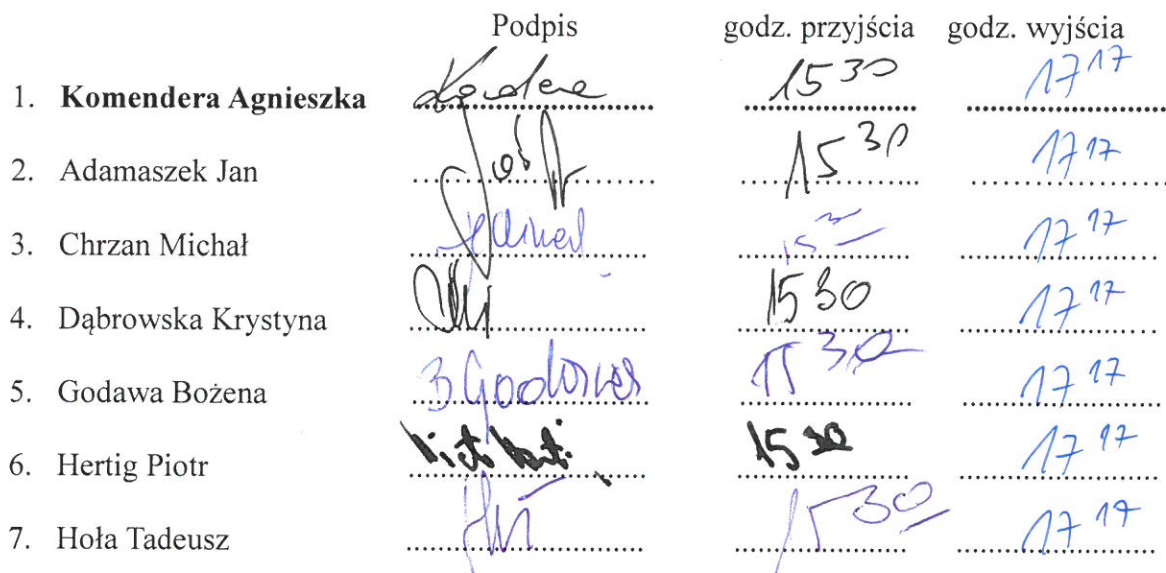 Podpis godz. przyjścia godz. wyjścia
1. Komendera Agnieszka 15 30 17 17
2. Adamaszek Jan 15 30 17 17
3. Chrzan Michał 17 17
4. Dąbrowska Krystyna 15 30 17 17
5. Godawa Bożena B Godawa 15 30 17 17
6. Hertig Piotr 15 30 17 17
7. Hoła Tadeusz 15 30 17 17